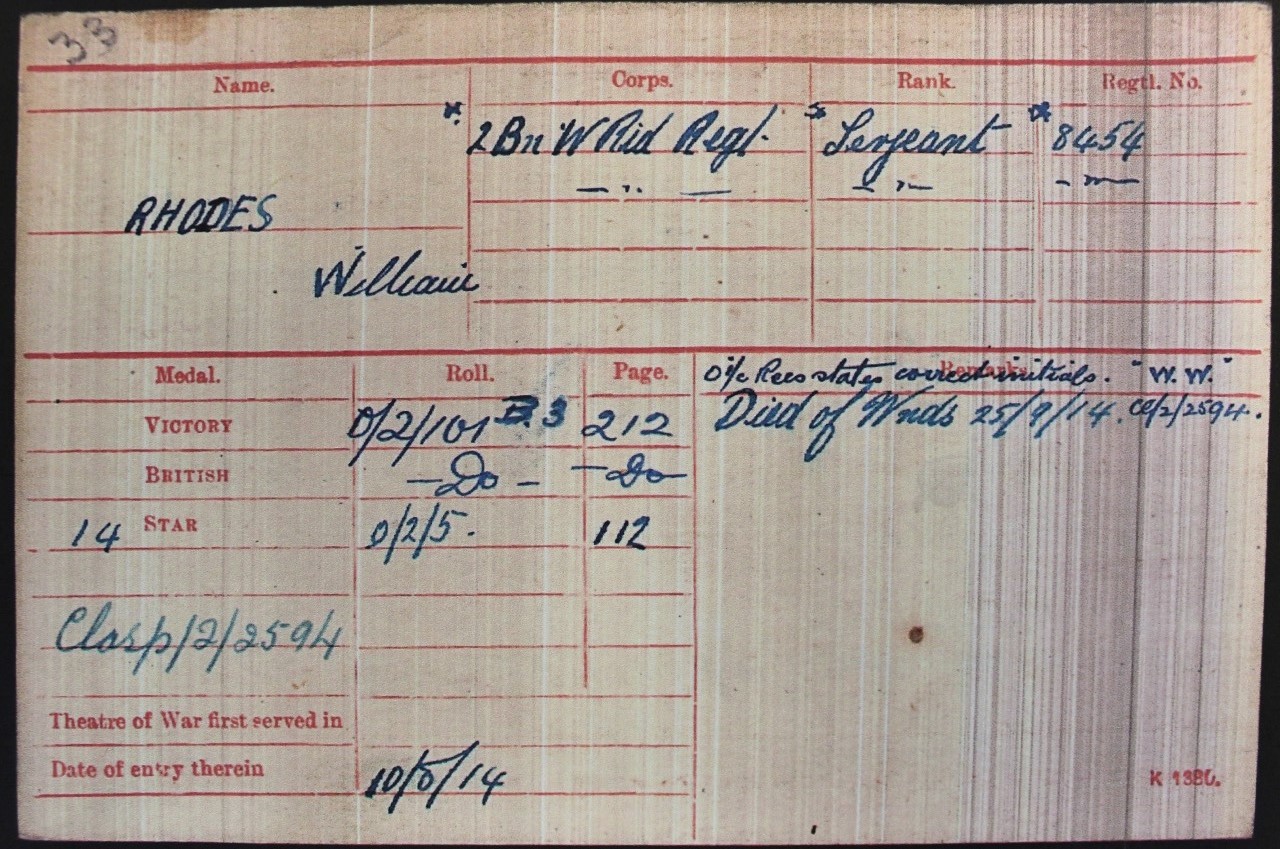 33
Name. Corps. Rank. Regtl. No.
* 2 Bn W Rid Regt. * Sergeant * 8454
— " — — " — — " —
RHODES
William
Medal. Roll. Page. Remarks
O i/c Recs states correct initials. "W. W."
VICTORY O/2/101 B.3 212 Died of Wnds 25/9/14. Cl/2/2594.
BRITISH — Do — — Do —
14 STAR O/2/5. 112
Clasp/2/2594
Theatre of War first served in
Date of entry therein 10/9/14
K 1380.